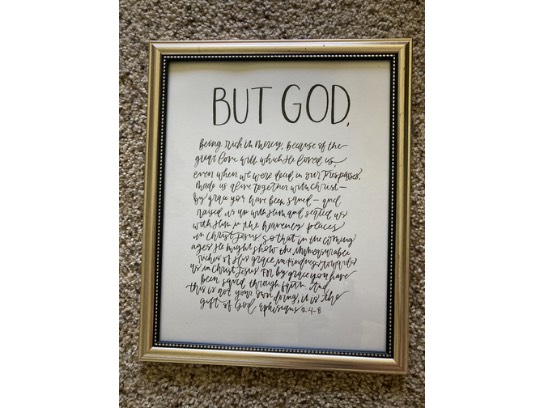 BUT GOD,
Being rich in mercy, because of the
great love with which He loved us
even when we were dead in our trespasses,
Made us alive together with Christ—
by grace you have been saved— and
raised us up with Him and seated us
with Him in the heavenly places
in Christ Jesus so that in the coming
ages He might show the immeasurable
riches of His grace in kindness towards
us in Christ Jesus For by grace you have
been saved through faith. And
this is not your own doing, it is the
gift of God ephesians 2:4-8